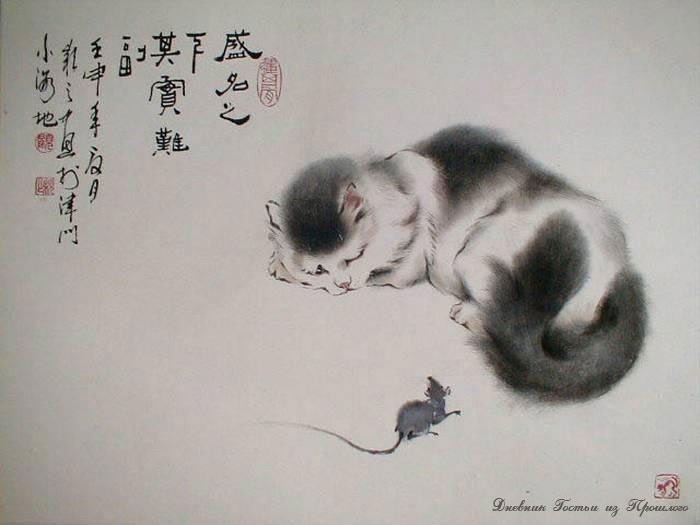 盛名之
下
其實難
副
壬申年夏月
於津門
小
地
Дневник Гостьи из Прошлого